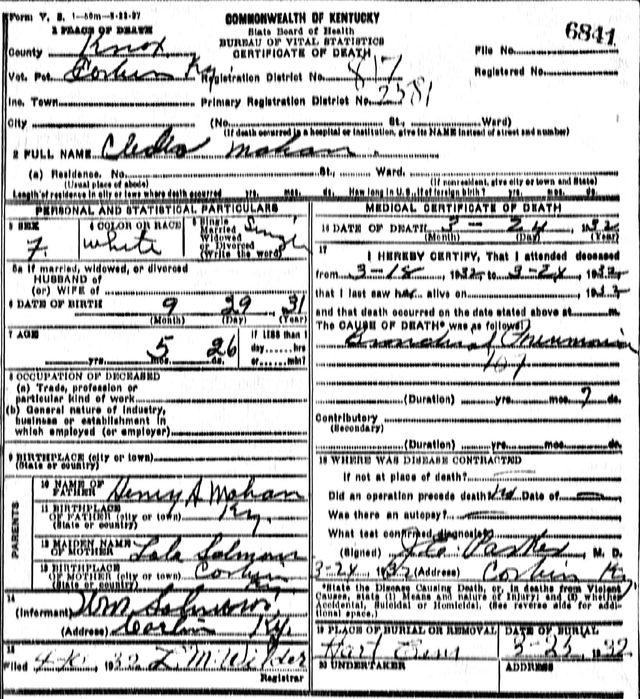 Form V. S. 1-50m-5-23-27
COMMONWEALTH OF KENTUCKY
State Board of Health
BUREAU OF VITAL STATISTICS
CERTIFICATE OF DEATH
6841
1 PLACE OF DEATH
County Knox
File No.
Vot. Pct. Corbin Ky Registration District No. 817
Registered No.
Inc. Town Primary Registration District No. 2381
City (No. St., Ward)
(If death occurred in a hospital or institution, give its NAME instead of street and number)
2 FULL NAME Mahan
(a) Residence. No. St., Ward.
(Usual place of abode) (If nonresident, give city or town and State)
Length of residence in city or town where death occurred yrs. mos. ds. How long in U. S., if of foreign birth? yrs. mos. ds.
PERSONAL AND STATISTICAL PARTICULARS
3 SEX F. 4 COLOR OR RACE white 5 Single Married Widowed or Divorced (Write the word) Single
5a If married, widowed, or divorced
HUSBAND of
(or) WIFE of
6 DATE OF BIRTH 9 29 31
(Month) (Day) (Year)
7 AGE yrs. 5 mos. 26 ds. If LESS than 1 day hrs or min?
8 OCCUPATION OF DECEASED
(a) Trade, profession or
particular kind of work
(b) General nature of industry,
business or establishment in
which employed (or employer)
9 BIRTHPLACE (city or town)
(State or country)
PARENTS
10 NAME OF FATHER Henry A Mahan
11 BIRTHPLACE OF FATHER (city or town) Ky.
(State or country)
12 MAIDEN NAME OF MOTHER Lola
13 BIRTHPLACE OF MOTHER (city or town) Corbin
(State or country)
14
(Informant) Wm
(Address) Corbin Ky.
15
Filed 1932 L. M. Wilder
Registrar
MEDICAL CERTIFICATE OF DEATH
16 DATE OF DEATH 3 - 24 1932
(Month) (Day) (Year)
17
I HEREBY CERTIFY, That I attended deceased
from 3-18 1932 to 3-24 1932
that I last saw her alive on 1932
and that death occurred on the date stated above at m.
The CAUSE OF DEATH* was as follows:
Bronchial Pneumonia
107
(Duration) yrs. mos. 7 ds.
Contributory
(Secondary)
(Duration) yrs. mos. ds.
18 WHERE WAS DISEASE CONTRACTED
If not at place of death?
Did an operation precede death? No Date of
Was there an autopsy?
What test confirmed diagnosis?
(Signed) Parker M. D.
3-24 1932 (Address) Corbin Ky.
*State the Disease Causing Death, or, in deaths from Violent
Causes, state (1) Means and nature of Injury; and (2) whether
Accidental, Suicidal or Homicidal. (See reverse side for additional space.)
19 PLACE OF BURIAL OR REMOVAL DATE OF BURIAL
Hart 3-25 1932
20 UNDERTAKER ADDRESS